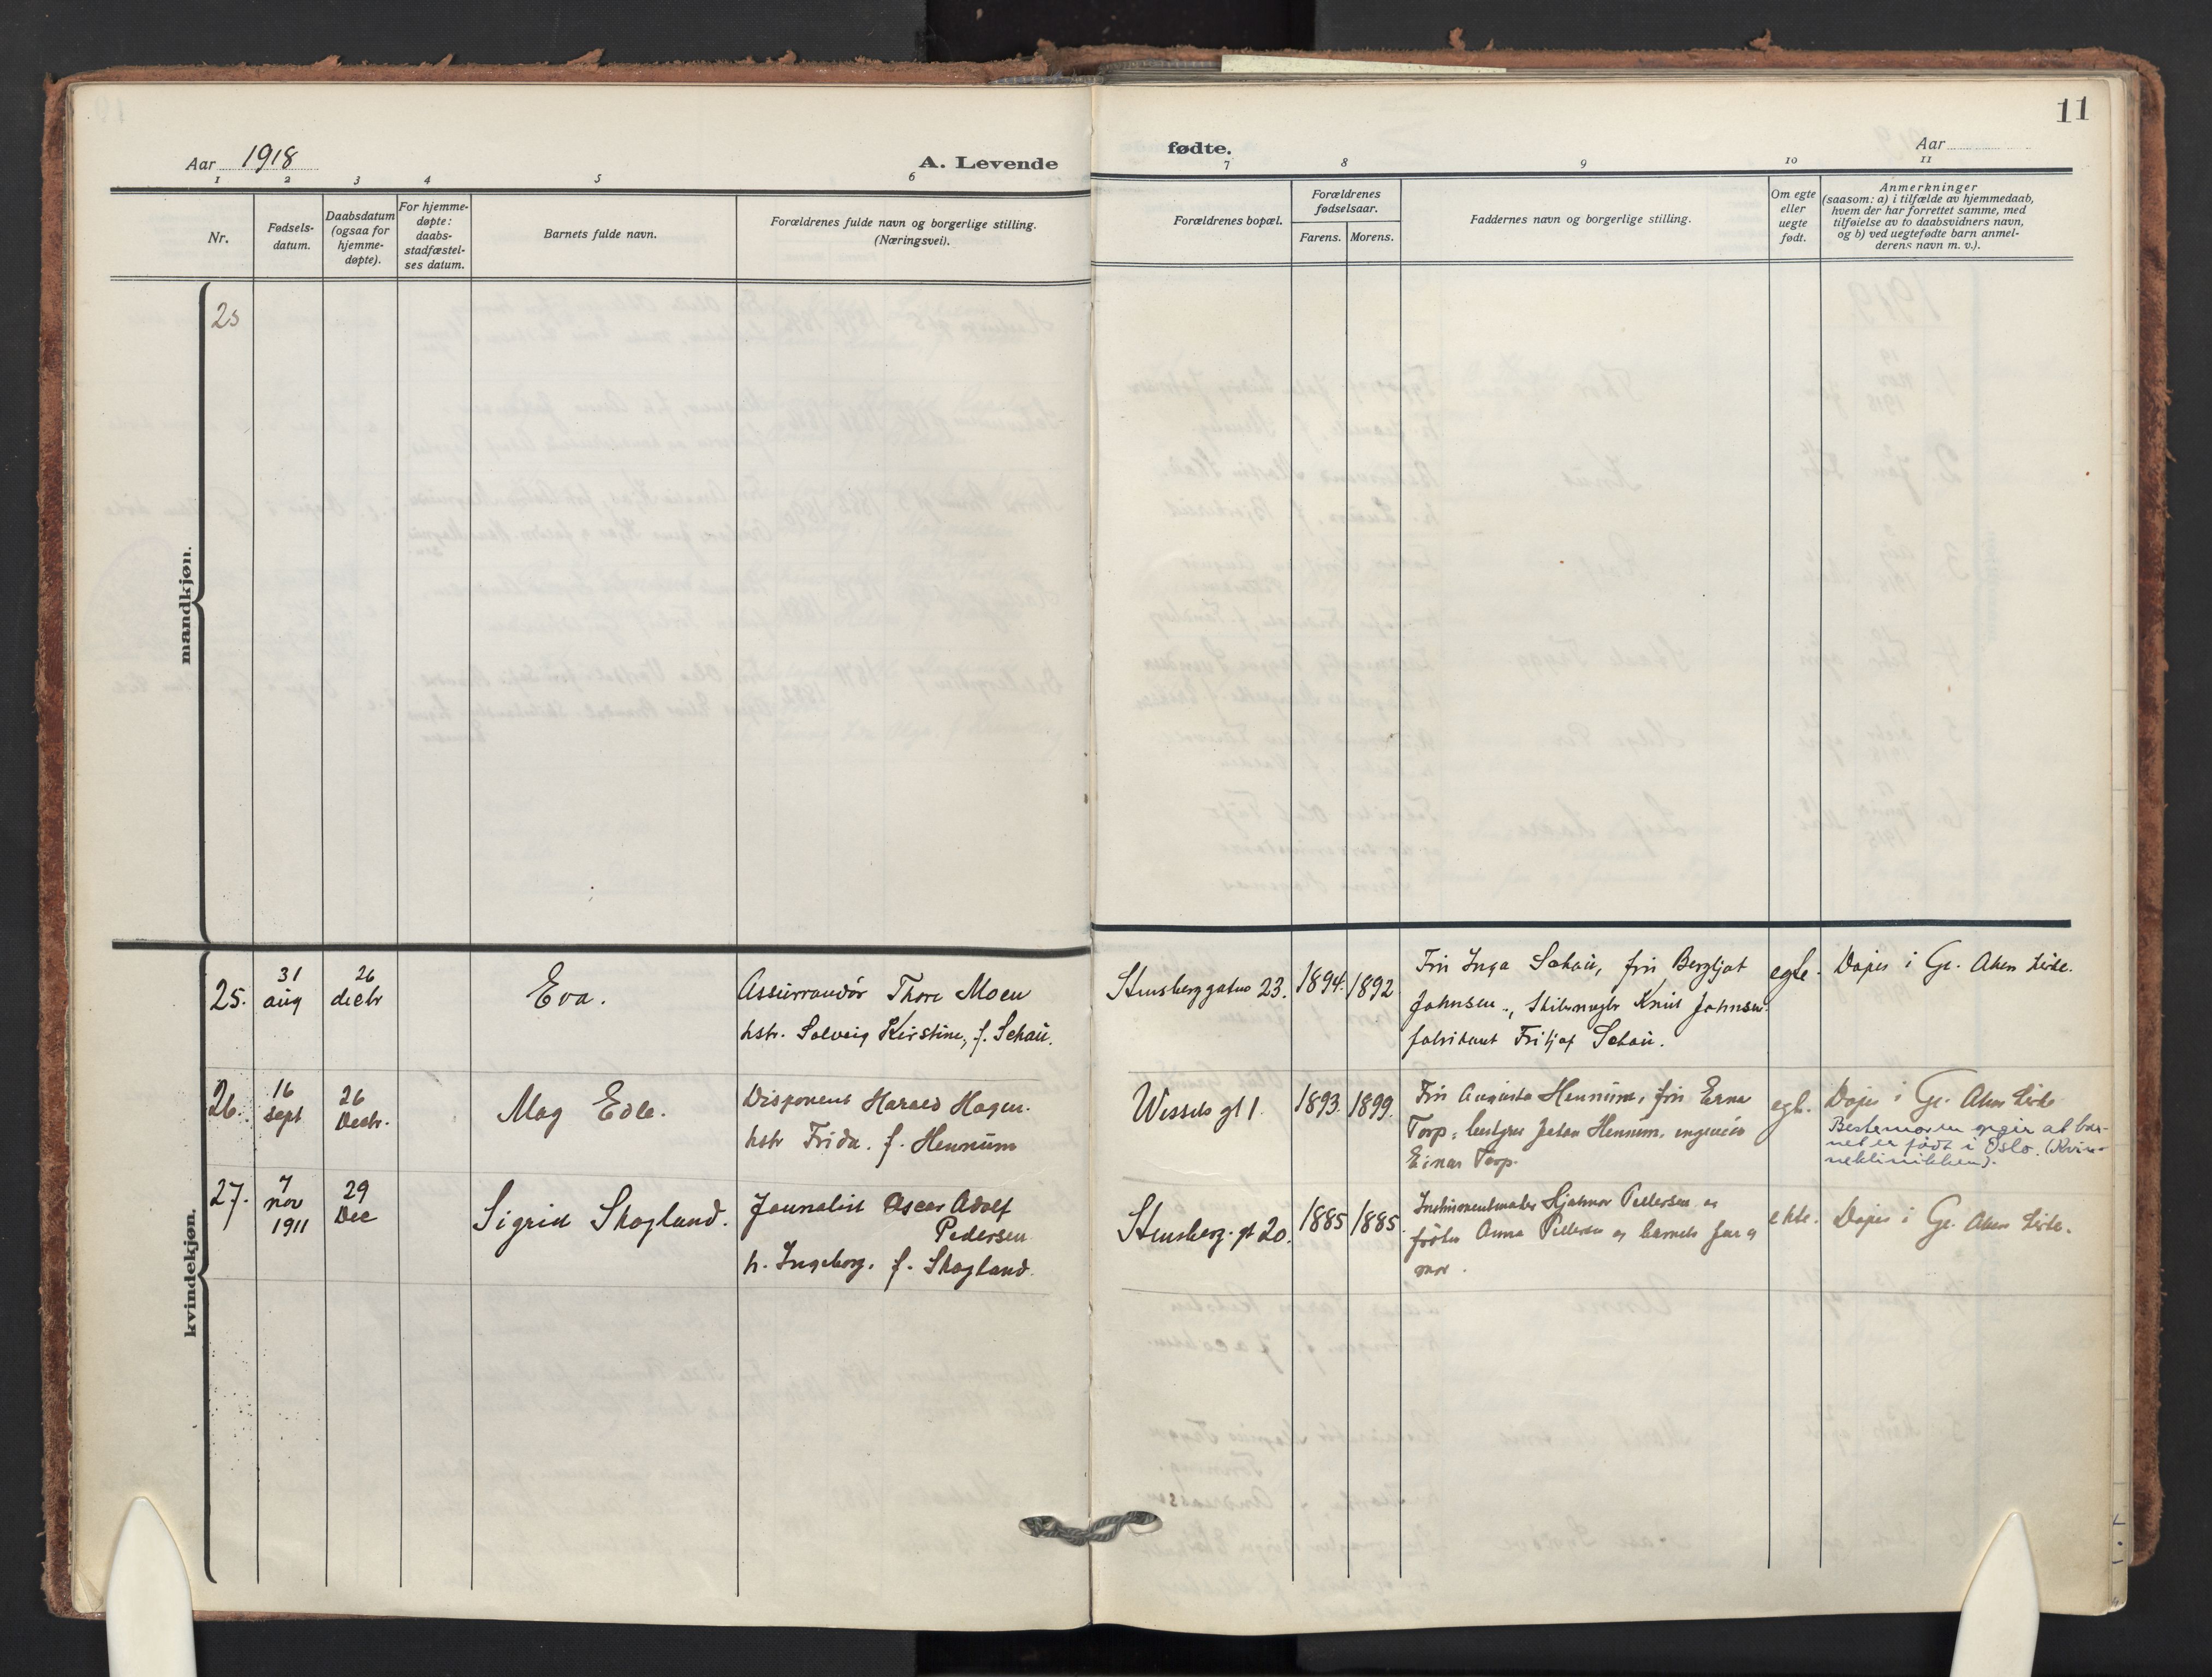 11
Aar 1918
A. Levende
fødte.
Aar
1 2 3 4 5 6 7 8 9 10 11
Nr.
Fødsels-
datum.
Daabsdatum
(ogsaa for
hjemme-
døpte).
For hjemme-
døpte:
daabs-
stadfæstel-
ses datum.
Barnets fulde navn.
Forældrenes fulde navn og borgerlige stilling.
(Næringsvei).
Forældrenes bopæl.
Forældrenes
fødselsaar.
Farens.
Morens.
Faddernes navn og borgerlige stilling.
Om egte
eller
uegte
født.
Anmerkninger
(saasom: a) i tilfælde av hjemmedaab,
hvem der har forrettet samme, med
tilføielse av to daabsvidners navn,
og b) ved uegtefødte barn anmel-
derens navn m. v.).
mandkjøn.
25
kvindekjøn.
25.
31
aug
26
decbr
Eva.
Assurrandør Thore Moen
hstr. Solveig Kirstine, f. Schau.
Stensberggaten 23.
1894.
1892
Fru Inga Schau, fru Bergljot
Johnsen., Skibsmegler Knut Johnsen.
fabrikant Fritjof Schau.
egte.
Døpes i Gl. Aker kirke.
26.
16
sept
26
Decbr.
Mag Edle.
Disponent Harald Hagen.
hstr Frida. f. Hennum
Wessels gt 1.
1893.
1899.
Fru Augusta Hennum, fru Erna
Torp, Johan Hennum, ingeniør
Einar Torp.
egte.
Døpes i Gl. Aker kirke
Bestemoren opgir at bar-
net er født i Oslo. (Kvin-
neklinikken).
27.
7
nov
1911
29
Dec
Sigrid Skogland.
Journalist Oscar Adolf
Pedersen
h. Ingeborg. f. Skogland.
Stensberg. gt 20.
1885
1885.
Instrumentmaker Hjalmar Pettersen og
frøken Anna Pettersen og barnets far og
mor.
ekte.
Døpes i Gl. Aker kirke.